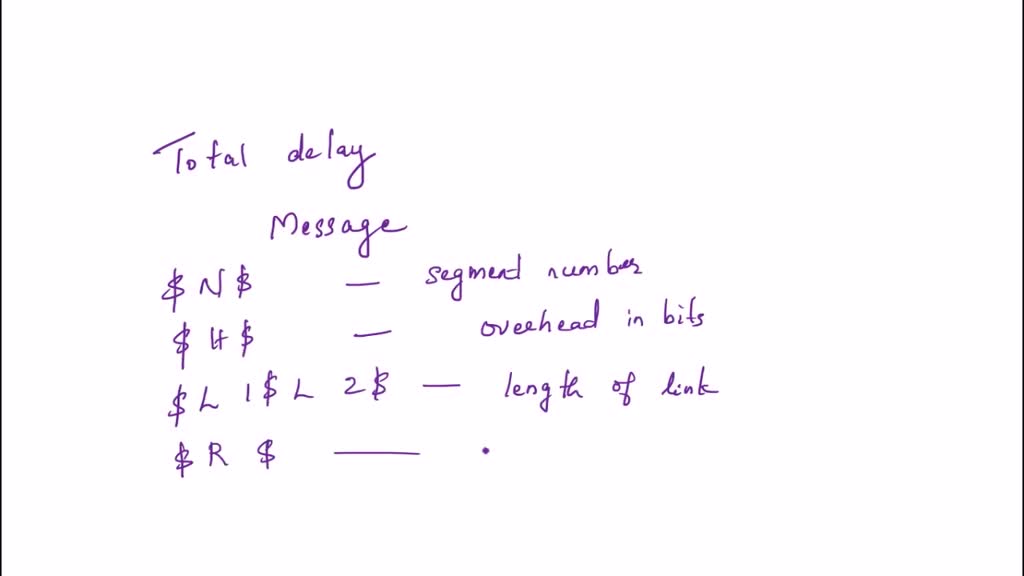 Total delay
Message
$ N $ — segment number
$ H $ — overhead in bits
$ L 1 $ L 2 $ — length of link
$ R $ —